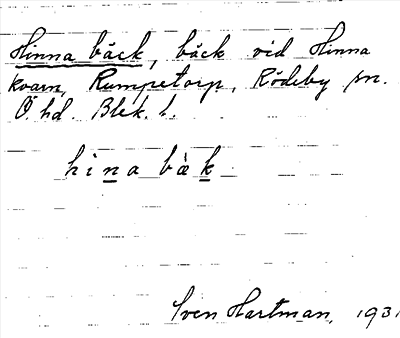 Hinna bäck, bäck vid Hinna
kvarn, Rumpetorp, Rödeby sn.
Ö. hd. Blek. l.
hi̱ṉa bà̈ḵ
Sven Hartman, 1931